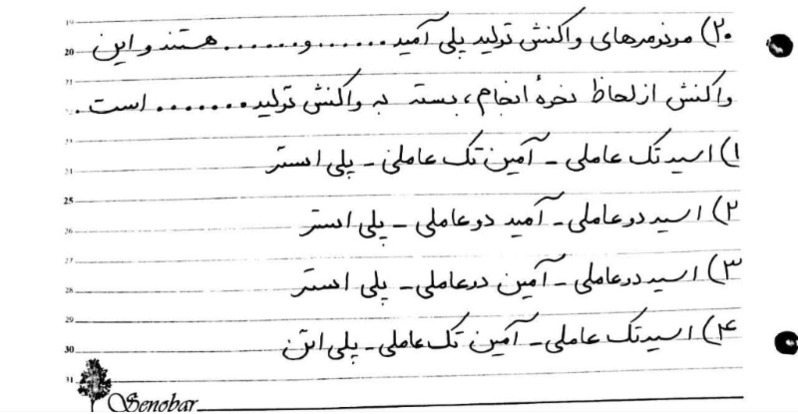 ۲۰) مونومرهای واکنش تولید پلی آمید ....... و ....... هستند و این
واکنش از لحاظ نحوهٔ انجام، بسته به واکنش تولید ....... است.
۱) اسید تک عاملی - آمین تک عاملی - پلی استر
۲) اسید دو عاملی - آمید دو عاملی - پلی استر
۳) اسید دو عاملی - آمین دو عاملی - پلی استر
۴) اسید تک عاملی - آمین تک عاملی - پلی اتن
19
20
21
23
24
25
26
27
28
29
30
31
Senobar